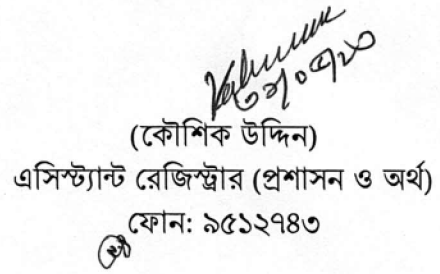 (কৌশিক উদ্দিন)
এসিস্ট্যান্ট রেজিস্ট্রার (প্রশাসন ও অর্থ)
ফোন: ৯৫১২৭৪৩